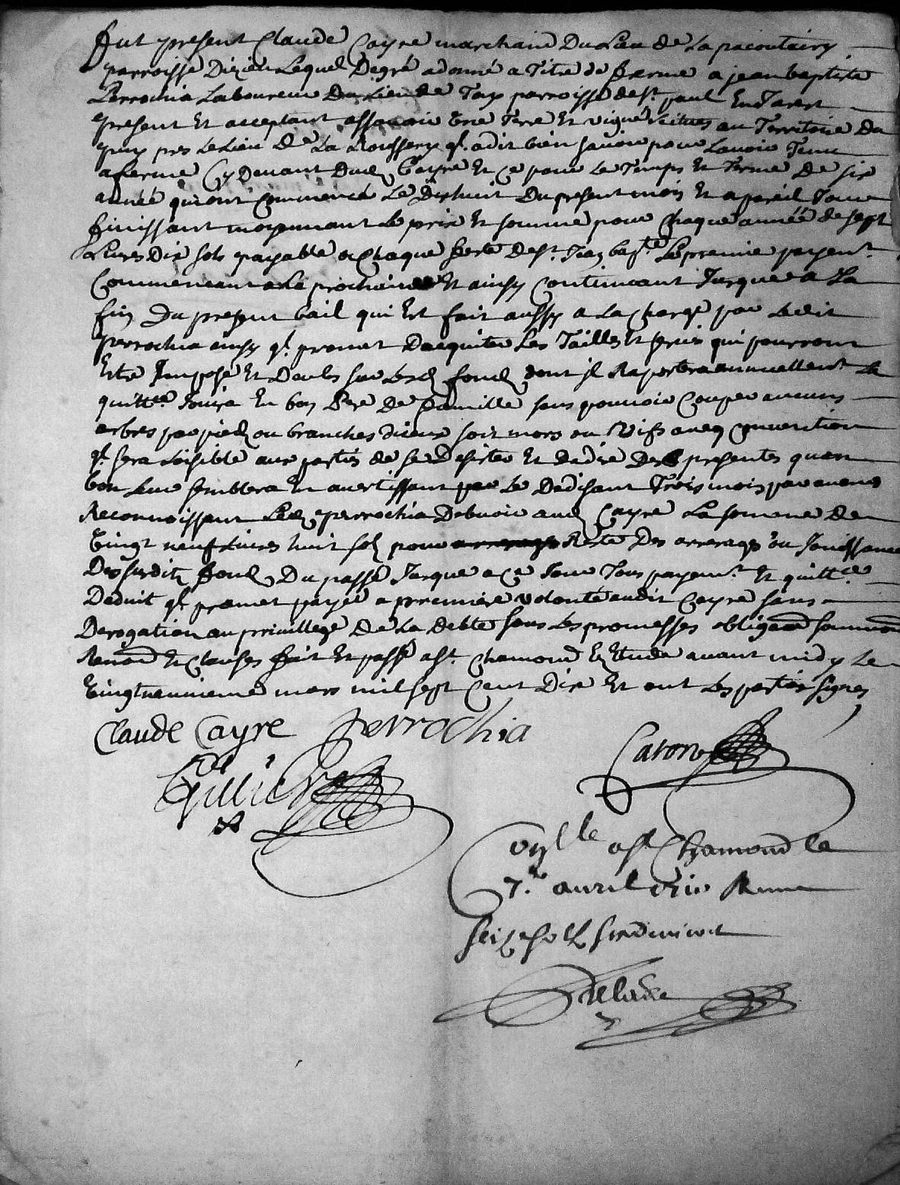 fut present Claude Cayre marchand Du Lieu de La
parroisse Dizieu Lequel Degré a donné a Titre de ferme a jean baptiste
perrochia Laboureur Du Lieu de parroisse de st paul En Jarest
present Et acceptant assavoir Une Terre Et vigne scitues au Territoire Du
puy pres Le Lieu De La Roussery ql. a dit bien savoir pour Lavoir Tenu
aferme Cy Devant Dud. Cayre Et Ce pour Le Temps Et Terme De six
année qui ont commencé Le Dixhuit Du present mois Et a pareil Jour
finissant moyennant Le prix Et somme pour Chaque année de sept
Livres Dix sols payable a Chaque feste de st. Jean bapte. Le premie payemt.
Commencant a La prochaine Et ainsy Continuant Jusque a La
fin Du present bail qui Est fait aussy a La Charge par Ledit
perrochia ainsy ql. promet Dacquiter Les Tailles Et qui pourront
Estre Imposé Et Deubs sur Lesd. fond. dont jl Raportera annuellemt. La
quittce. Jouira En bon Pere De famille sans pouvoir Couper aucuns
arbres par pied ou branches Diceux soit mors ou Vifs aveq Convention
ql. sera Loisible aux partis de se Desister Et Des presentes quan
bon Leur semblera Et avertissant par Le Dedisant Trois mois par avance
Reconnoissant Led. perrochia Debvoir aud. Cayre La somme De
Vingt neuf Livres huit sol. pour Reste Des arrerage ou Jouissance
Des susdit. fond. Du passé Jusque a Ce Jour Tous payemt. Et quittce.
Deduit ql. promet payer a premiere volonté audit Cayre sans
Derogation au privillege De La Debte sous Les promesses obligaons soumions
Renaons Et Clauses fait Et passé a st. Chamond Es Etude avant midy Le
Vingtneuvieme mars mil sept Cent Dix Et ont Les parties signés
Claude Cayre perrochia

a st Chamond le
7.e avril 1710 Receu
seize solz